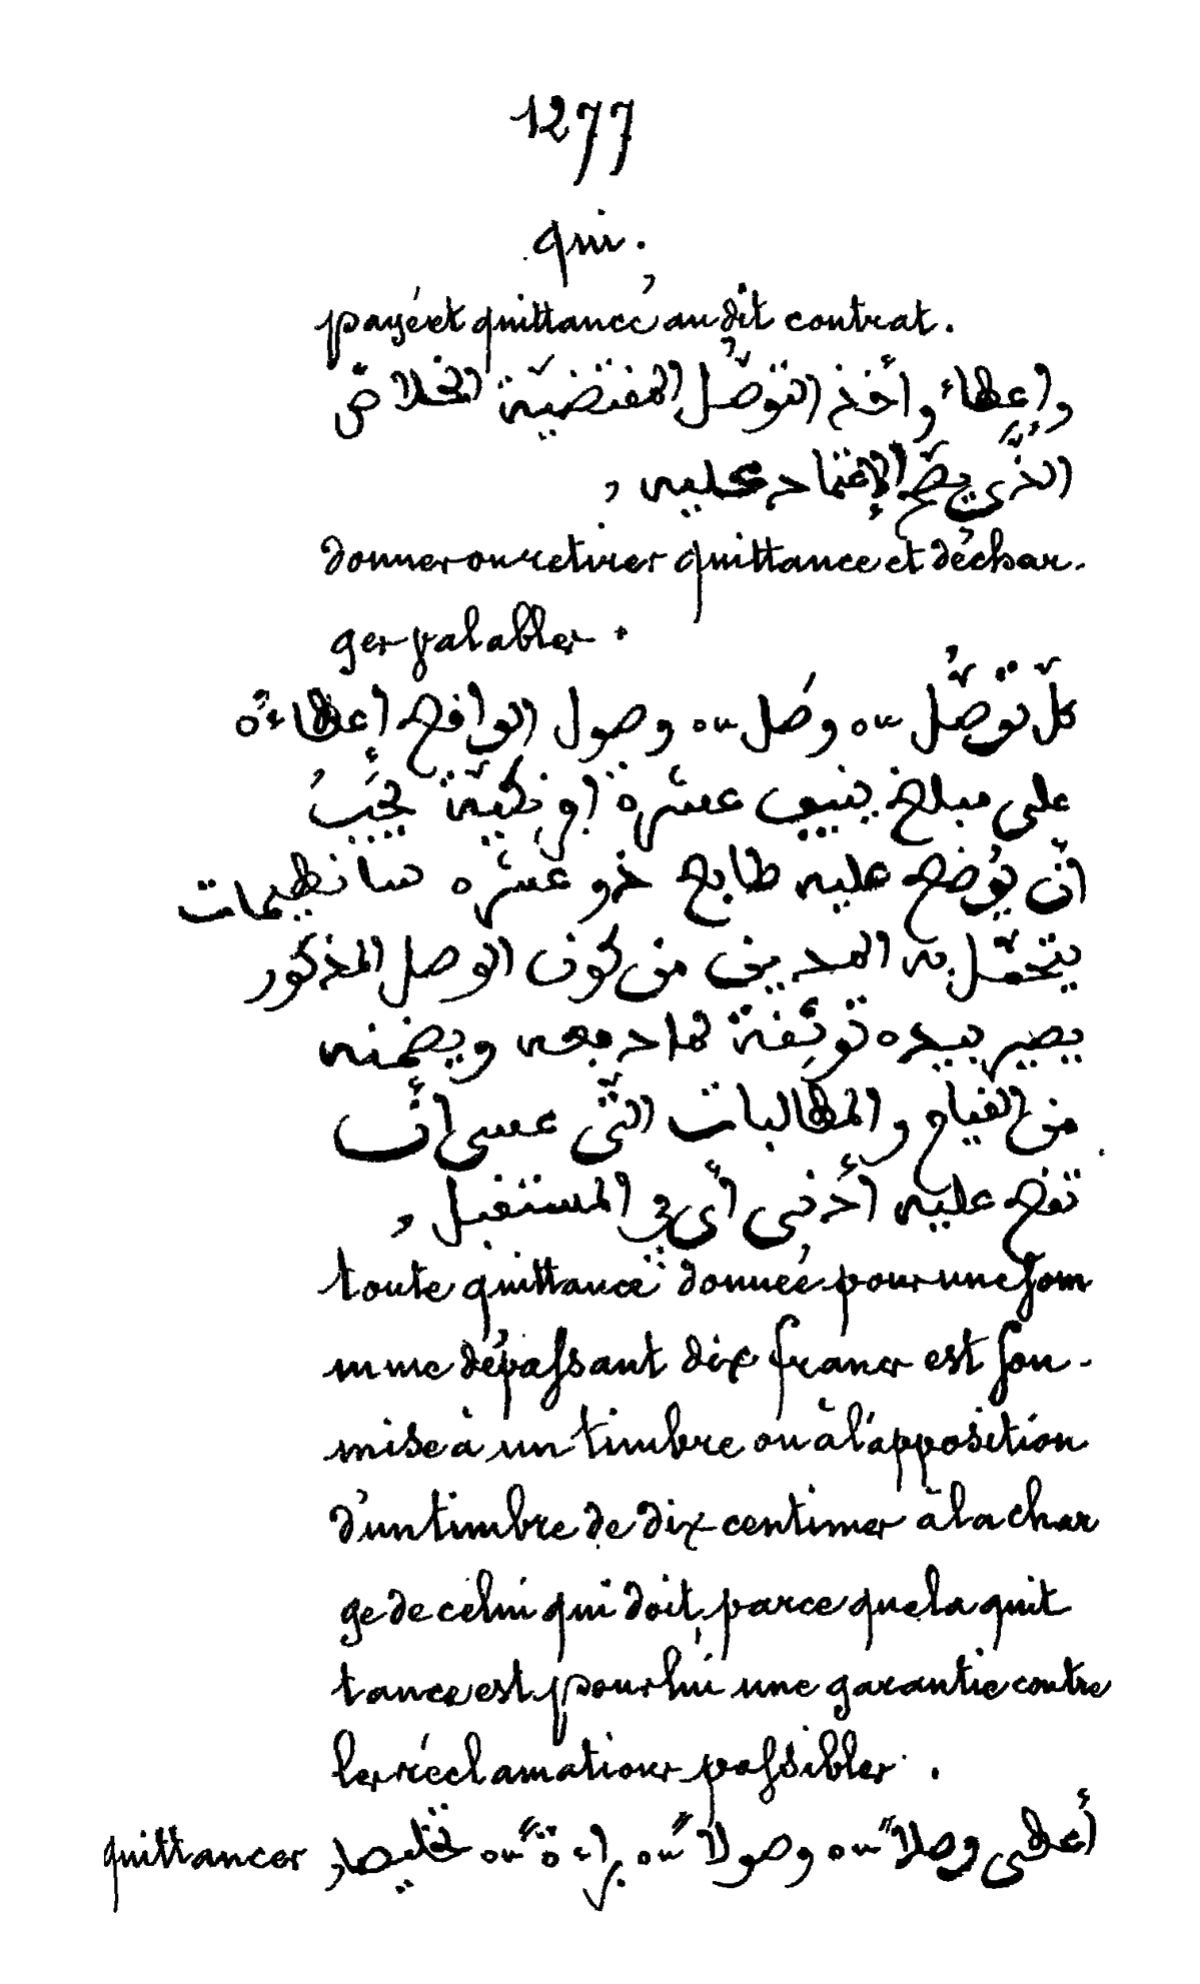 1277
qui.
payé et quittancé audit contrat.
وإعطاء وأخذ التوصّل المقتضيّة الخلاص
الذّي يصحّ الإعتماد عليه ,
donner ou retirer quittance et déchar-
ges valables.
كلّ توصّل ou وصَل ou وصول الواقع إعطاءه
على مبلغ ينيف عشرة إفرنكيّة يجَبُ
أن يُوضع عليه طابع ذو عشره سانطيمات
يتحمّل به المدين من كون الوصل المذكور
يصير بيده توثقة لما دفعه ويضمنه
من القيام والمطالبات التّي عسى أن
تقع عليه أدنى أي في المستقبل ,
toute quittance donnée pour une som
mme dépassant dix francs est sou-
mise à un timbre ou à l'apposition
d'un timbre de dix centimes à la char
ge de celui qui doit, parce que la quit
tance est pour lui une garantie contre
les réclamations possibles.
quittancer أعطى وصلاً ou وصولاً ou براءةً ou تخليصا,